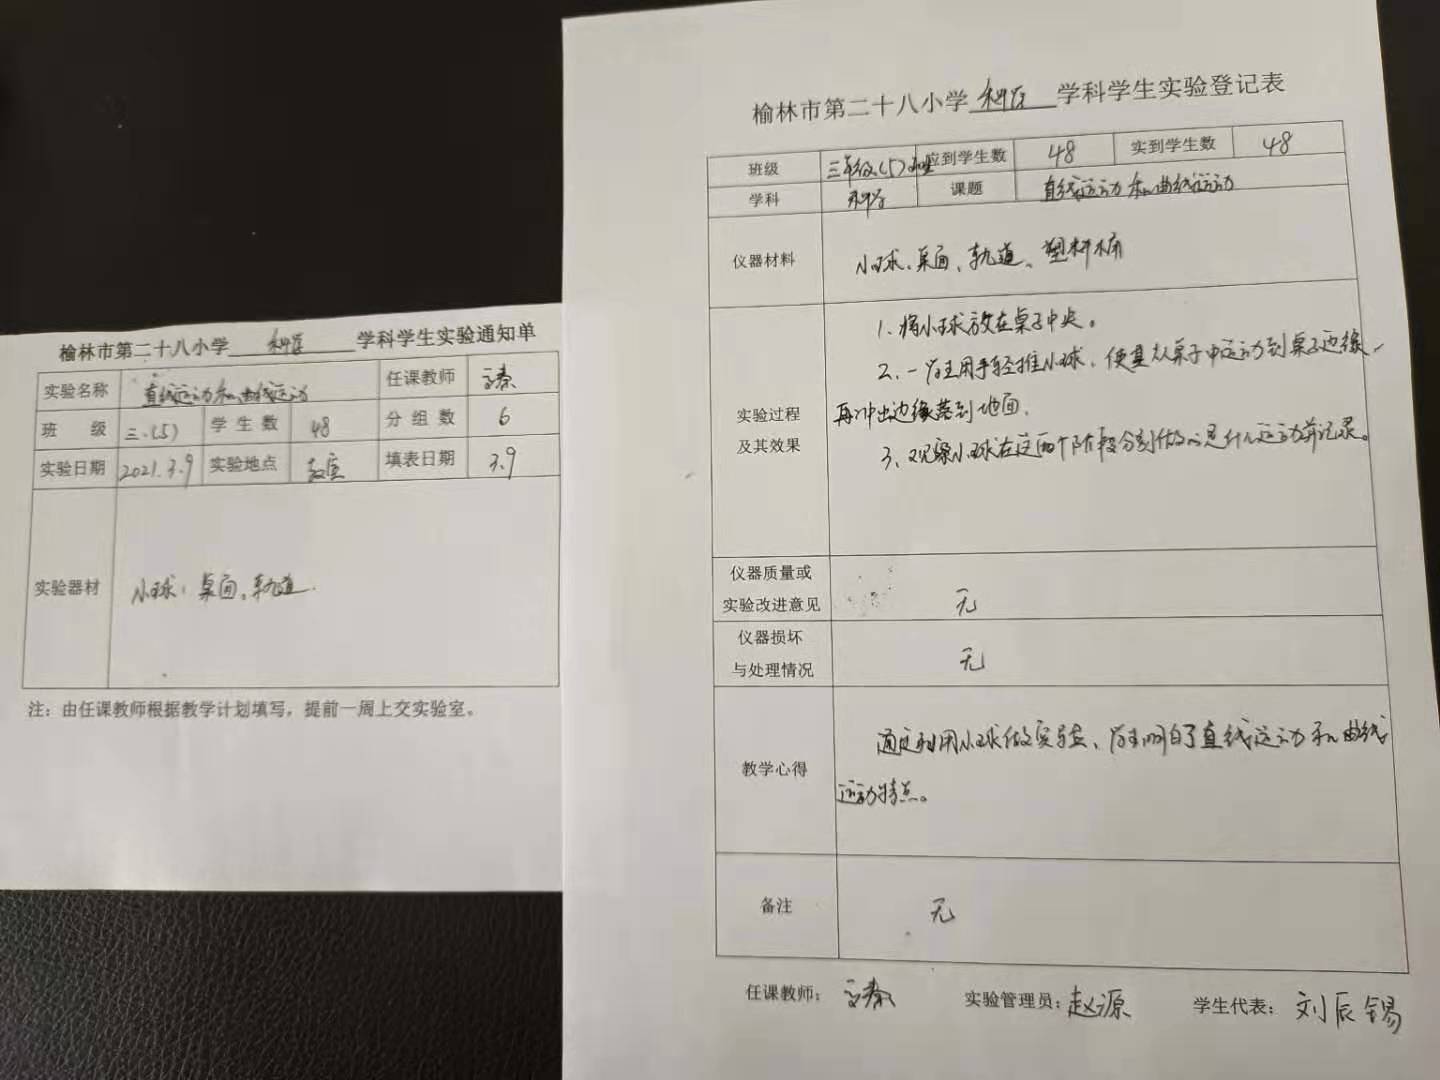 榆林市第二十八小学 科学 学科学生实验通知单
实验名称 直线运动和曲线运动 任课教师
班 级 三.(5) 学生数 48 分组数 6
实验日期 2021.3.9 实验地点 教室 填表日期 3.9
实验器材 小球、桌面、轨道.
注：由任课教师根据教学计划填写，提前一周上交实验室。
榆林市第二十八小学 科学 学科学生实验登记表
班级 三年级(5)班 应到学生数 48 实到学生数 48
学科 科学 课题 直线运动和曲线运动
仪器材料 小球、桌面、轨道、塑料桶
实验过程
及其效果
1.将小球放在桌子中央。
2.一学生用手轻推小球，使其从桌子中运动到桌子边缘，
再冲出边缘落到地面.
3.观察小球在这两个阶段分别做的是什么运动并记录。
仪器质量或
实验改进意见 无
仪器损坏
与处理情况 无
教学心得
通过利用小球做实验、学生明白了直线运动和曲线
运动特点。
备注 无
任课教师： 实验管理员：赵源 学生代表：刘辰锡